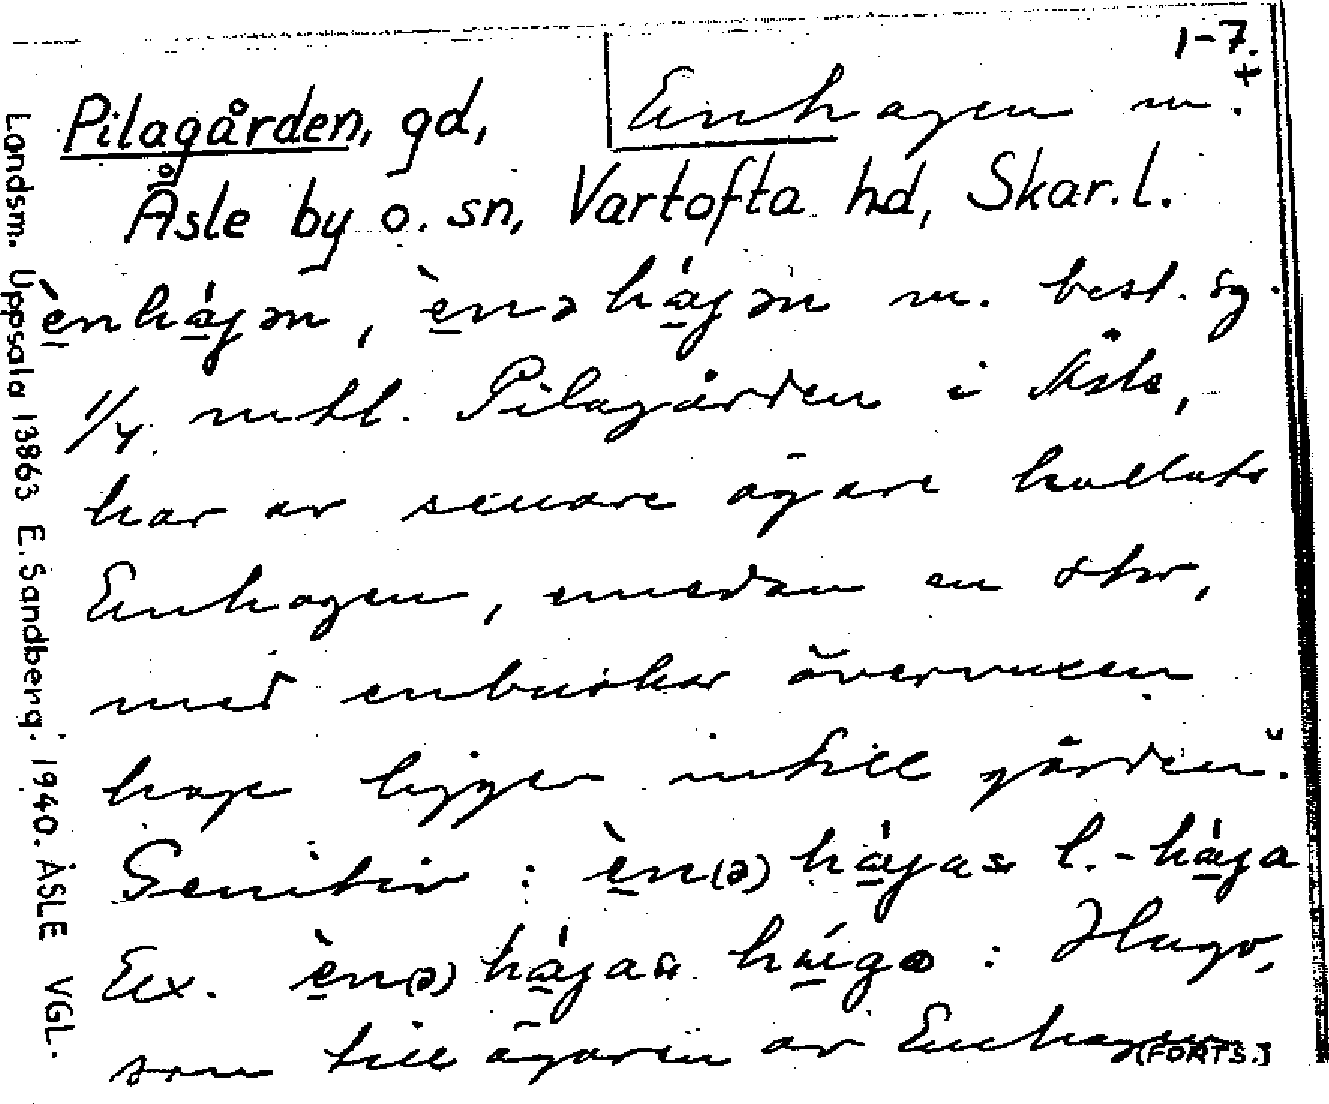 1-7.
+
Pilagården, gd,
Enhagen m.
Åsle by o. sn, Vartofta hd, Skar.l.
ènhágən, ènəhágən m. best. sg.
1/4 mtl. Pilagården i Åsle,
har av senare ägare kallats
Enhagen, emedan en stor,
med enbuskar övervuxen
hage ligger intill gården.
Genitiv : èn(ə)hágas l. -hága
Ex. èn(ə)hágas húgo : Hugo,
son till ägaren av Enhagen
(FORTS.)
Landsm. Uppsala 13863 E. Sandberg. 1940. ÅSLE VGL.